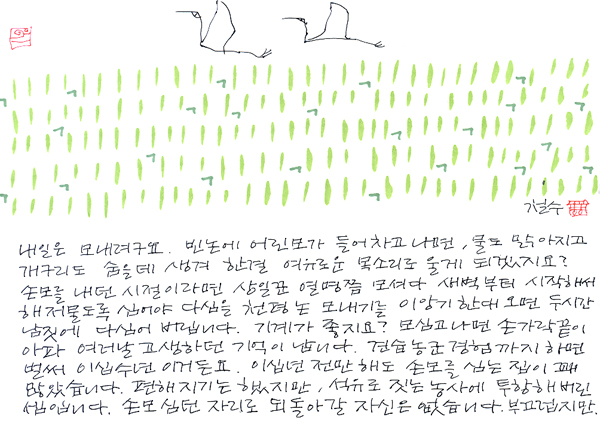 이철수
내일은 모내려구요. 빈논에 어린모가 들어차고나면, 물도
개구리도 숨을데 생겨 한결 여유로운 목소리로 울게 되겠지요?
손모를 내던 시절이라면 상일꾼 열명쯤 모셔다 새벽부터 시작해서
해저물도록 심어야 다심을 천평논 모내기를 이앙기한대 오면 두시간
남짓에 다심어 버립니다. 기계가 좋지요? 모심고나면 손가락끝이
아파 여러날 고생하던 기억이 납니다. 견습농군 경험까지 하면
벌써 이십수년 이거든요. 이십년 전만해도 손모를 심는 집이 꽤
많았습니다. 편해지기는 했지만, 석유로 짓는 농사에 투항해버린
셈입니다. 손모심던 자리로 되돌아갈 자신은 없습니다. 부끄럽지만.